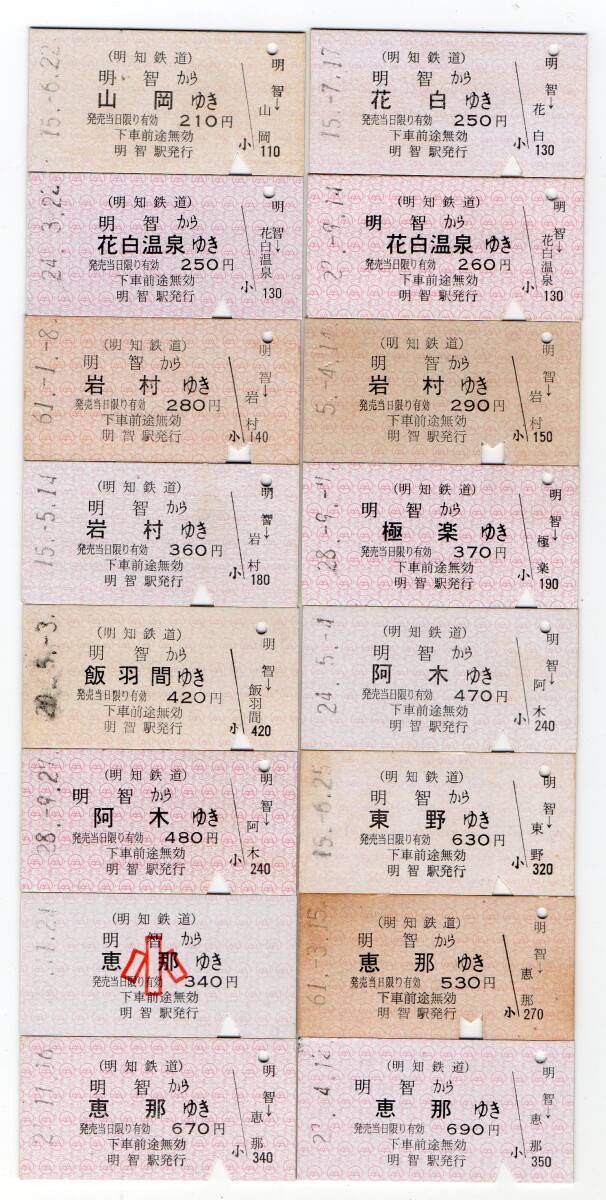 15.-6.22
(明知鉄道)
明智から
山岡ゆき
発売当日限り有効 210円
下車前途無効
明智駅発行
明智→山岡
小 110
15.-7.17
(明知鉄道)
明智から
花白ゆき
発売当日限り有効 250円
下車前途無効
明智駅発行
明智→花白
小 130
24.-3.22
(明知鉄道)
明智から
花白温泉ゆき
発売当日限り有効 250円
下車前途無効
明智駅発行
明智→花白温泉
小 130
(明知鉄道)
明智から
花白温泉ゆき
発売当日限り有効 260円
下車前途無効
明智駅発行
明智→花白温泉
小 130
61.-1.-8
(明知鉄道)
明智から
岩村ゆき
発売当日限り有効 280円
下車前途無効
明智駅発行
明智→岩村
小 140
(明知鉄道)
明智から
岩村ゆき
発売当日限り有効 290円
下車前途無効
明智駅発行
明智→岩村
小 150
15.-5.14
(明知鉄道)
明智から
岩村ゆき
発売当日限り有効 360円
下車前途無効
明智駅発行
明智→岩村
小 180
(明知鉄道)
明智から
極楽ゆき
発売当日限り有効 370円
下車前途無効
明智駅発行
明智→極楽
小 190
20.-5.-3
(明知鉄道)
明智から
飯羽間ゆき
発売当日限り有効 420円
下車前途無効
明智駅発行
明智→飯羽間
小 420
24.-5.-4
(明知鉄道)
明智から
阿木ゆき
発売当日限り有効 470円
下車前途無効
明智駅発行
明智→阿木
小 240
(明知鉄道)
明智から
阿木ゆき
発売当日限り有効 480円
下車前途無効
明智駅発行
明智→阿木
小 240
15.-6.25
(明知鉄道)
明智から
東野ゆき
発売当日限り有効 630円
下車前途無効
明智駅発行
明智→東野
小 320
(明知鉄道)
明智から
恵那ゆき
小
発売当日限り有効 340円
下車前途無効
明智駅発行
61.-3.15
(明知鉄道)
明智から
恵那ゆき
発売当日限り有効 530円
下車前途無効
明智駅発行
明智→恵那
小 270
(明知鉄道)
明智から
恵那ゆき
発売当日限り有効 670円
下車前途無効
明智駅発行
明智→恵那
小 340
(明知鉄道)
明智から
恵那ゆき
発売当日限り有効 690円
下車前途無効
明智駅発行
明智→恵那
小 350